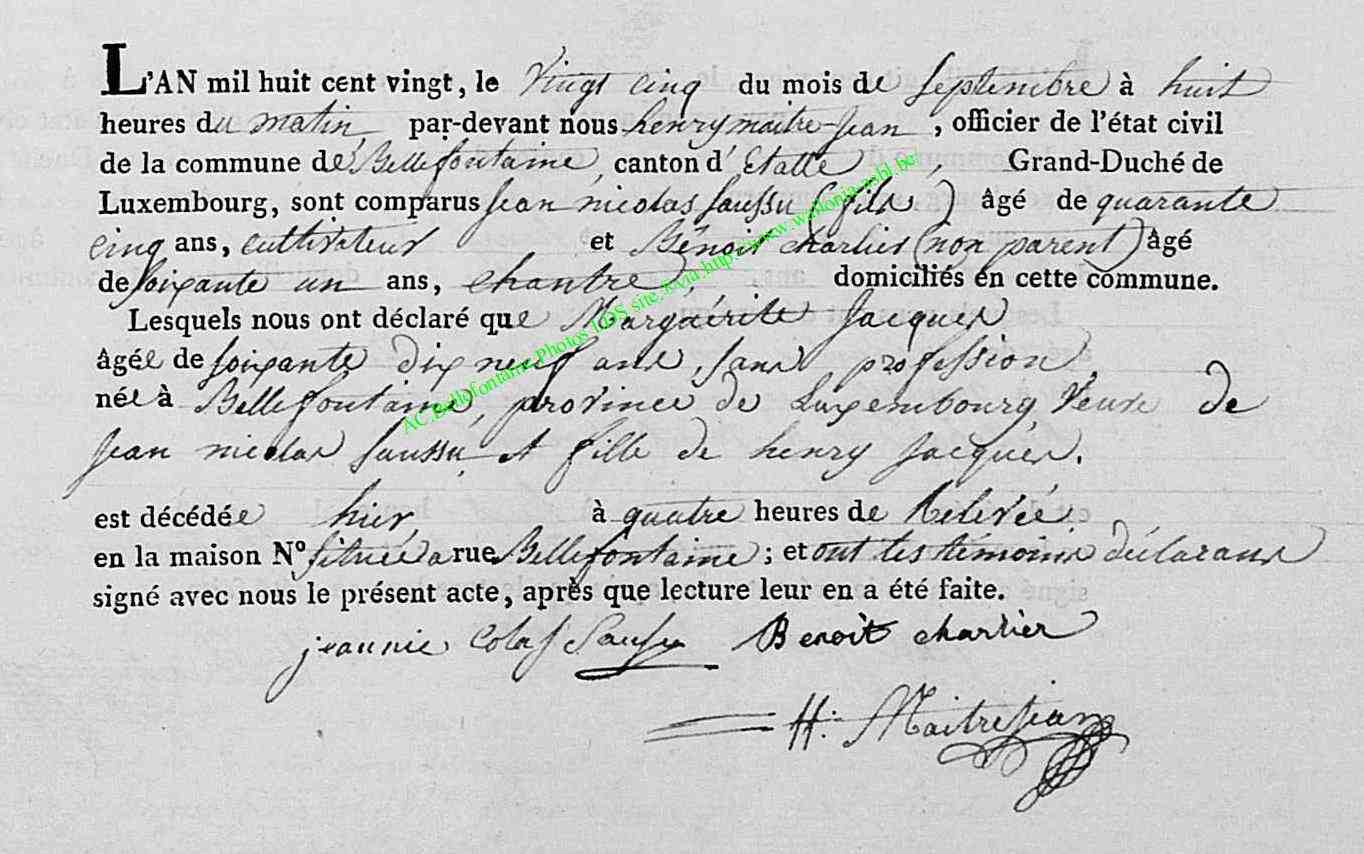 L'AN mil huit cent vingt, le Vingt cinq du mois de Septembre à huit
heures du matin par-devant nous henry maitre-Jean, officier de l'état civil
de la commune de Bellefontaine, canton d'Etalle, Grand-Duché de
Luxembourg, sont comparus Jean nicolas Saussu (fils) âgé de quarante
cinq ans, cultivateur et Bénoit charlier (non parent) âgé
de soixante un ans, chantre, domiciliés en cette commune.
Lesquels nous ont déclaré que Marguérite Jacques
âgée de soixante dix neuf ans, sans profession,
née à Bellefontaine, province de Luxembourg Veuve de
Jean nicolas Saussu et fille de henry Jacques.
est décédée hier, à quatre heures de Relevée
en la maison Nº située a rue Bellefontaine; et ont les témoins déclarans
signé avec nous le présent acte, après que lecture leur en a été faite.
jeannie Colas Sausu Benoit charlier
H: Maitrejean
AC Bellefontaine Photos LDS site, &via http://www.wallonia-asbl.be/